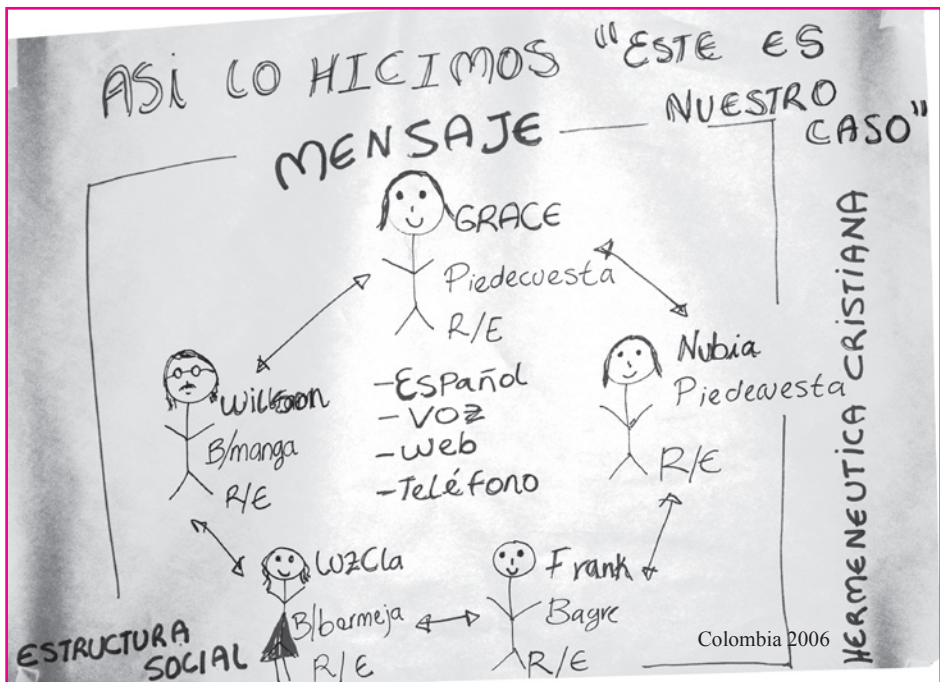 ASi LO HICIMOS "ESTE ES
NUESTRO
CASO"
MENSAJE
GRACE
Piedecuesta
R/E
Nubia
Piedecuesta
R/E
B/manga
R/E
-Español
-Voz
-Web
-Teléfono
LUZCla
B/barmeja
R/E
Frank
Bagre
R/E
ESTRUCTURA
SOCIAL
HERMENEUTICA CRISTIANA
Colombia 2006